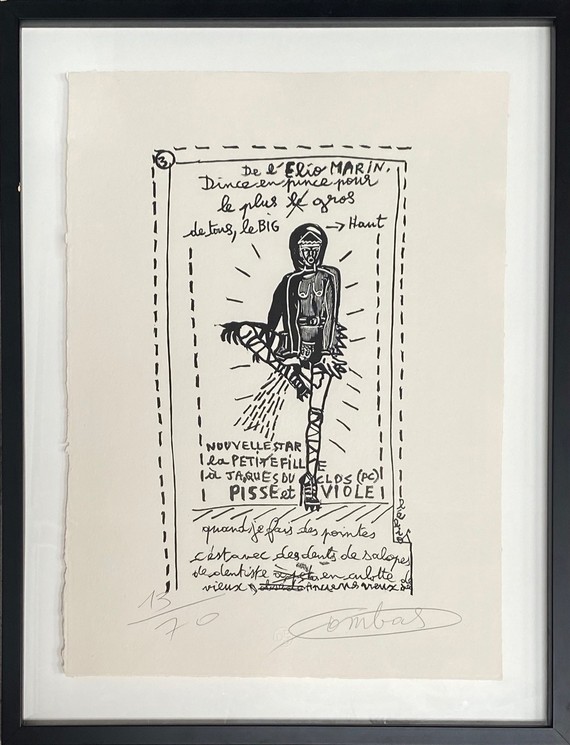 3
De l'Elio MARIN.
Dince en pince pour
le plus le gros
de tous, le BIG → Haut
NOUVELLE STAR
la PETITE FILLE
à JAQUES DU CLOS (PC)
PISSE et VIOLE
quand je fais des pointes
c'est avec des dents de salopes
de dentiste en culotte de
vieux
13/70
Combas